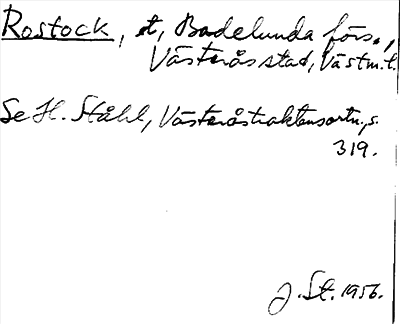 Rostock, st, Badelunda förs.,
Västerås stad, Västm. l.
Se H. Ståhl, Västeråstraktens ortn., s.
319.
J. St. 1956.